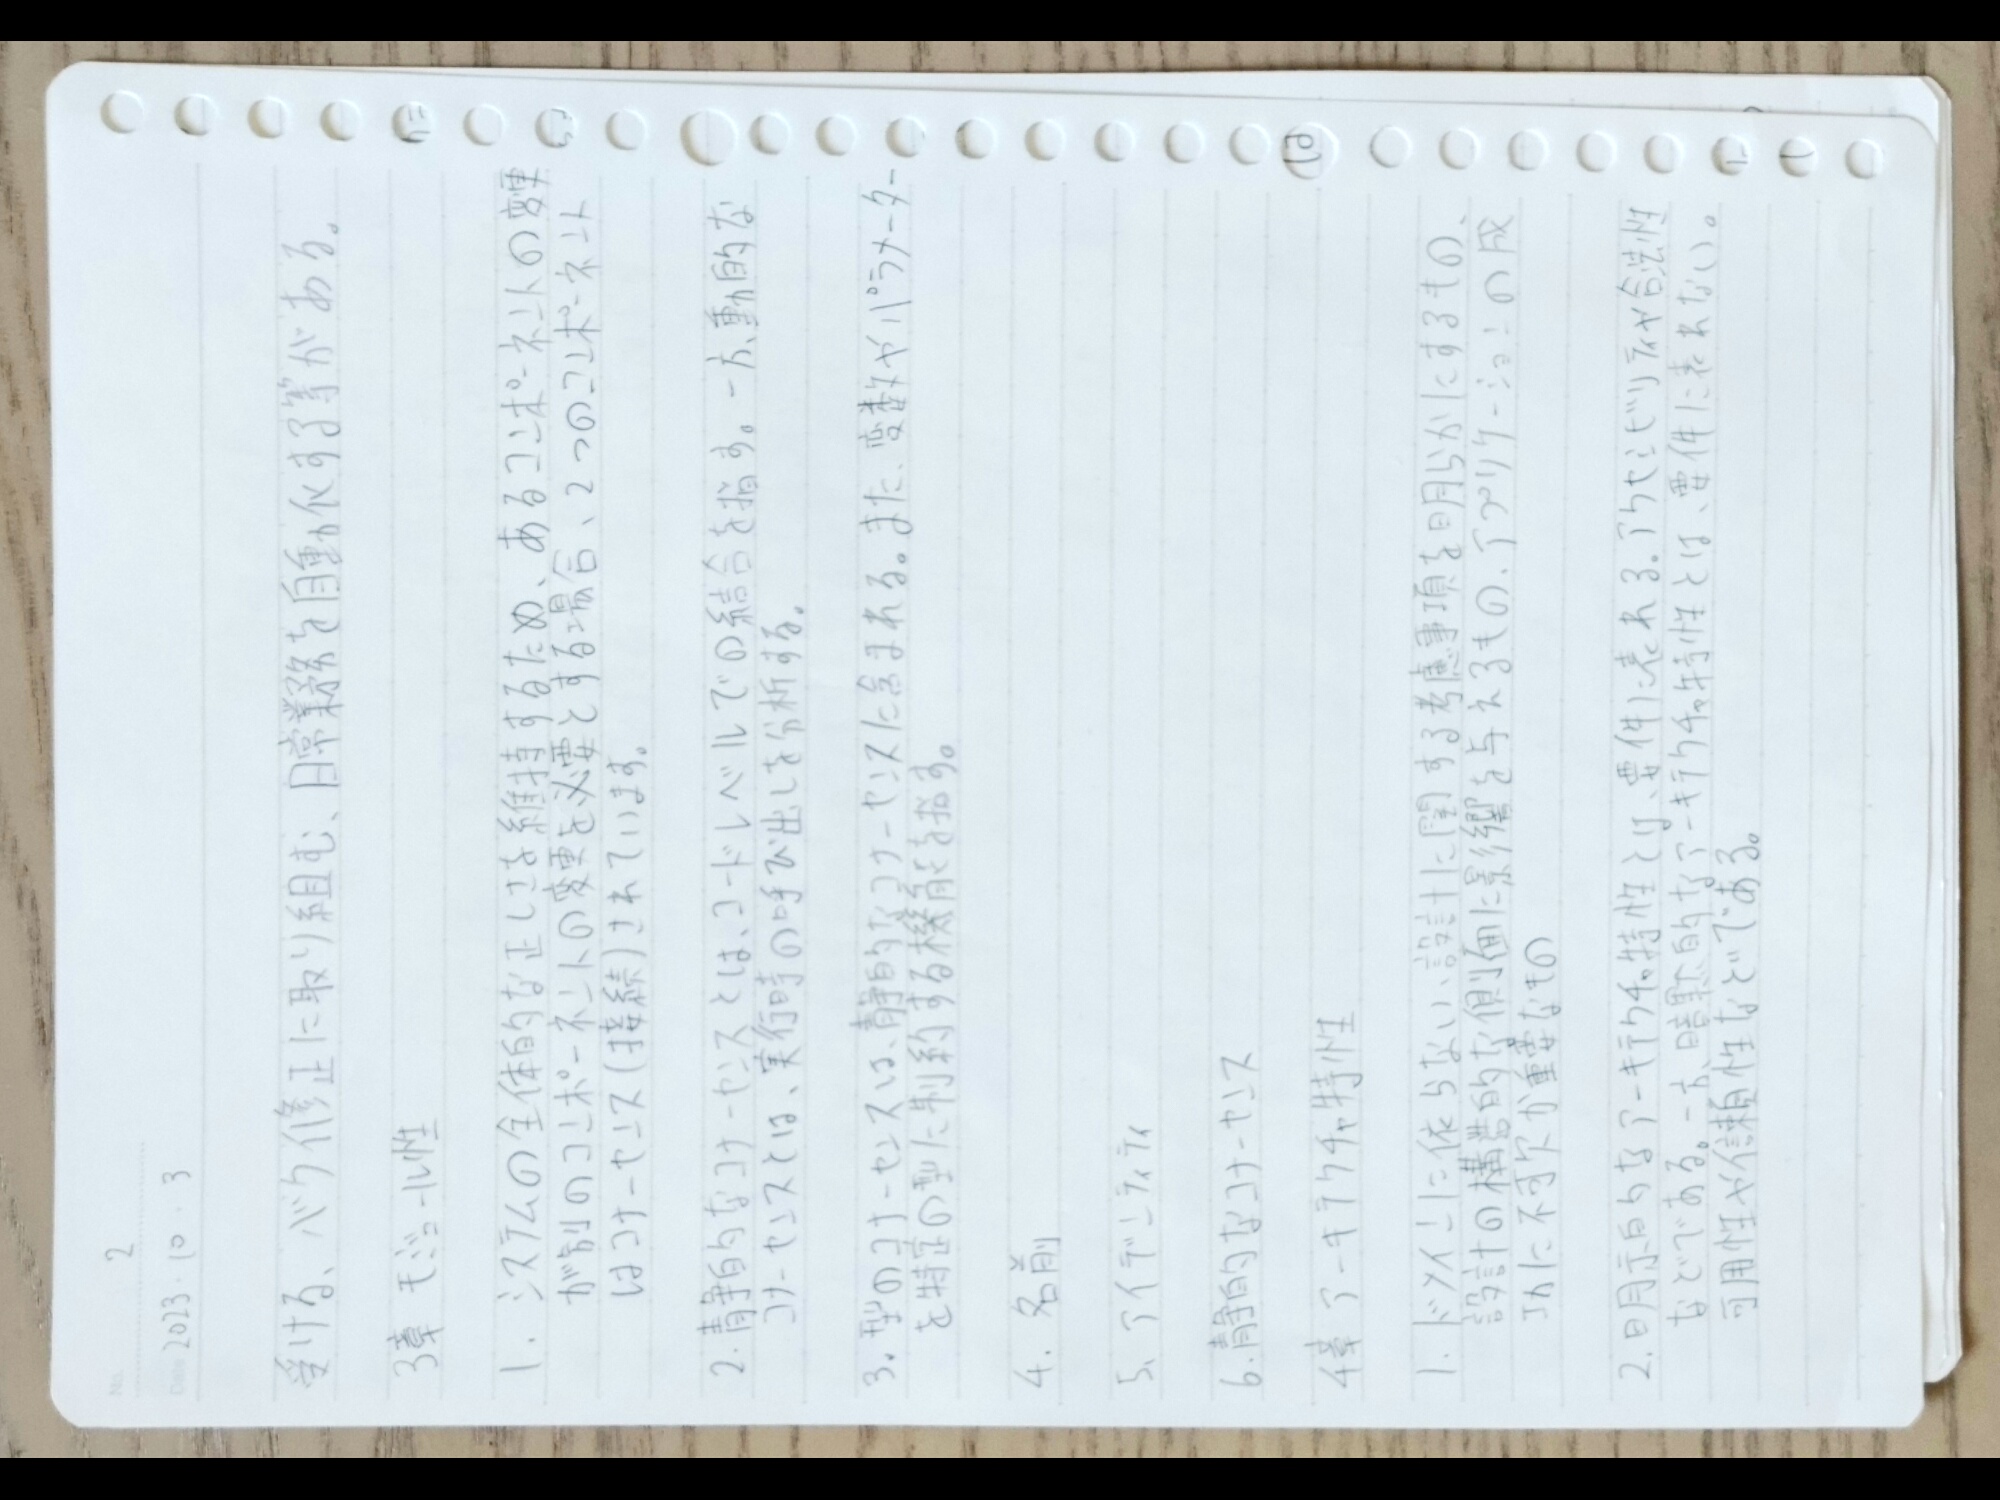 No. 2
Date 2023・10・3
受ける、バグ修正に取り組む、日常業務を自動化する等がある。
3章 モジュール性
1. システムの全体的な正しさを維持するため、あるコンポーネントの変更
が別のコンポーネントの変更を必要とする場合、2つのコンポーネント
はコナーセンス(接続)されています。
2. 静的なコナーセンスとは、コードレベルでの結合を指す。一方、動的な
コナーセンスとは、実行時の呼び出しを分析する。
3. 型のコナーセンスは、静的なコナーセンスに含まれる。また、変数やパラメーター
を特定の型に制約する機能を指す。
4. 名前
5. アイデンティティ
6. 静的なコナーセンス
4章 アーキテクチャ特性
1. ドメインに依らない、設計に関する考慮事項を明らかにするもの、
設計の構造的な側面に影響を与えるもの、アプリケーションの成
功に不可欠か重要なもの
2. 明示的なアーキテクチャ特性とは、要件に表れる。アクセシビリティや合法性
などである。一方、暗黙的なアーキテクチャ特性とは、要件に表れない。
可用性や信頼性などである。